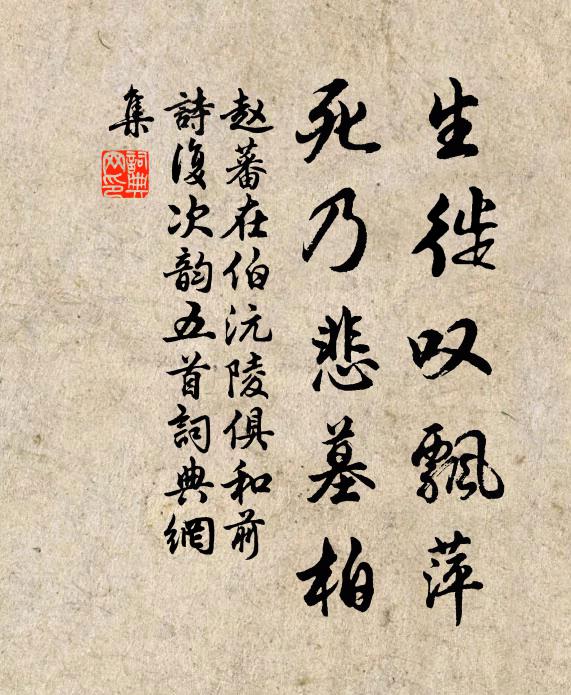 生徙叹飘萍
死乃悲墓柏
赵蕃在伯沅陵俱和前
詩復次韵五首詞典網
集
詞典网印